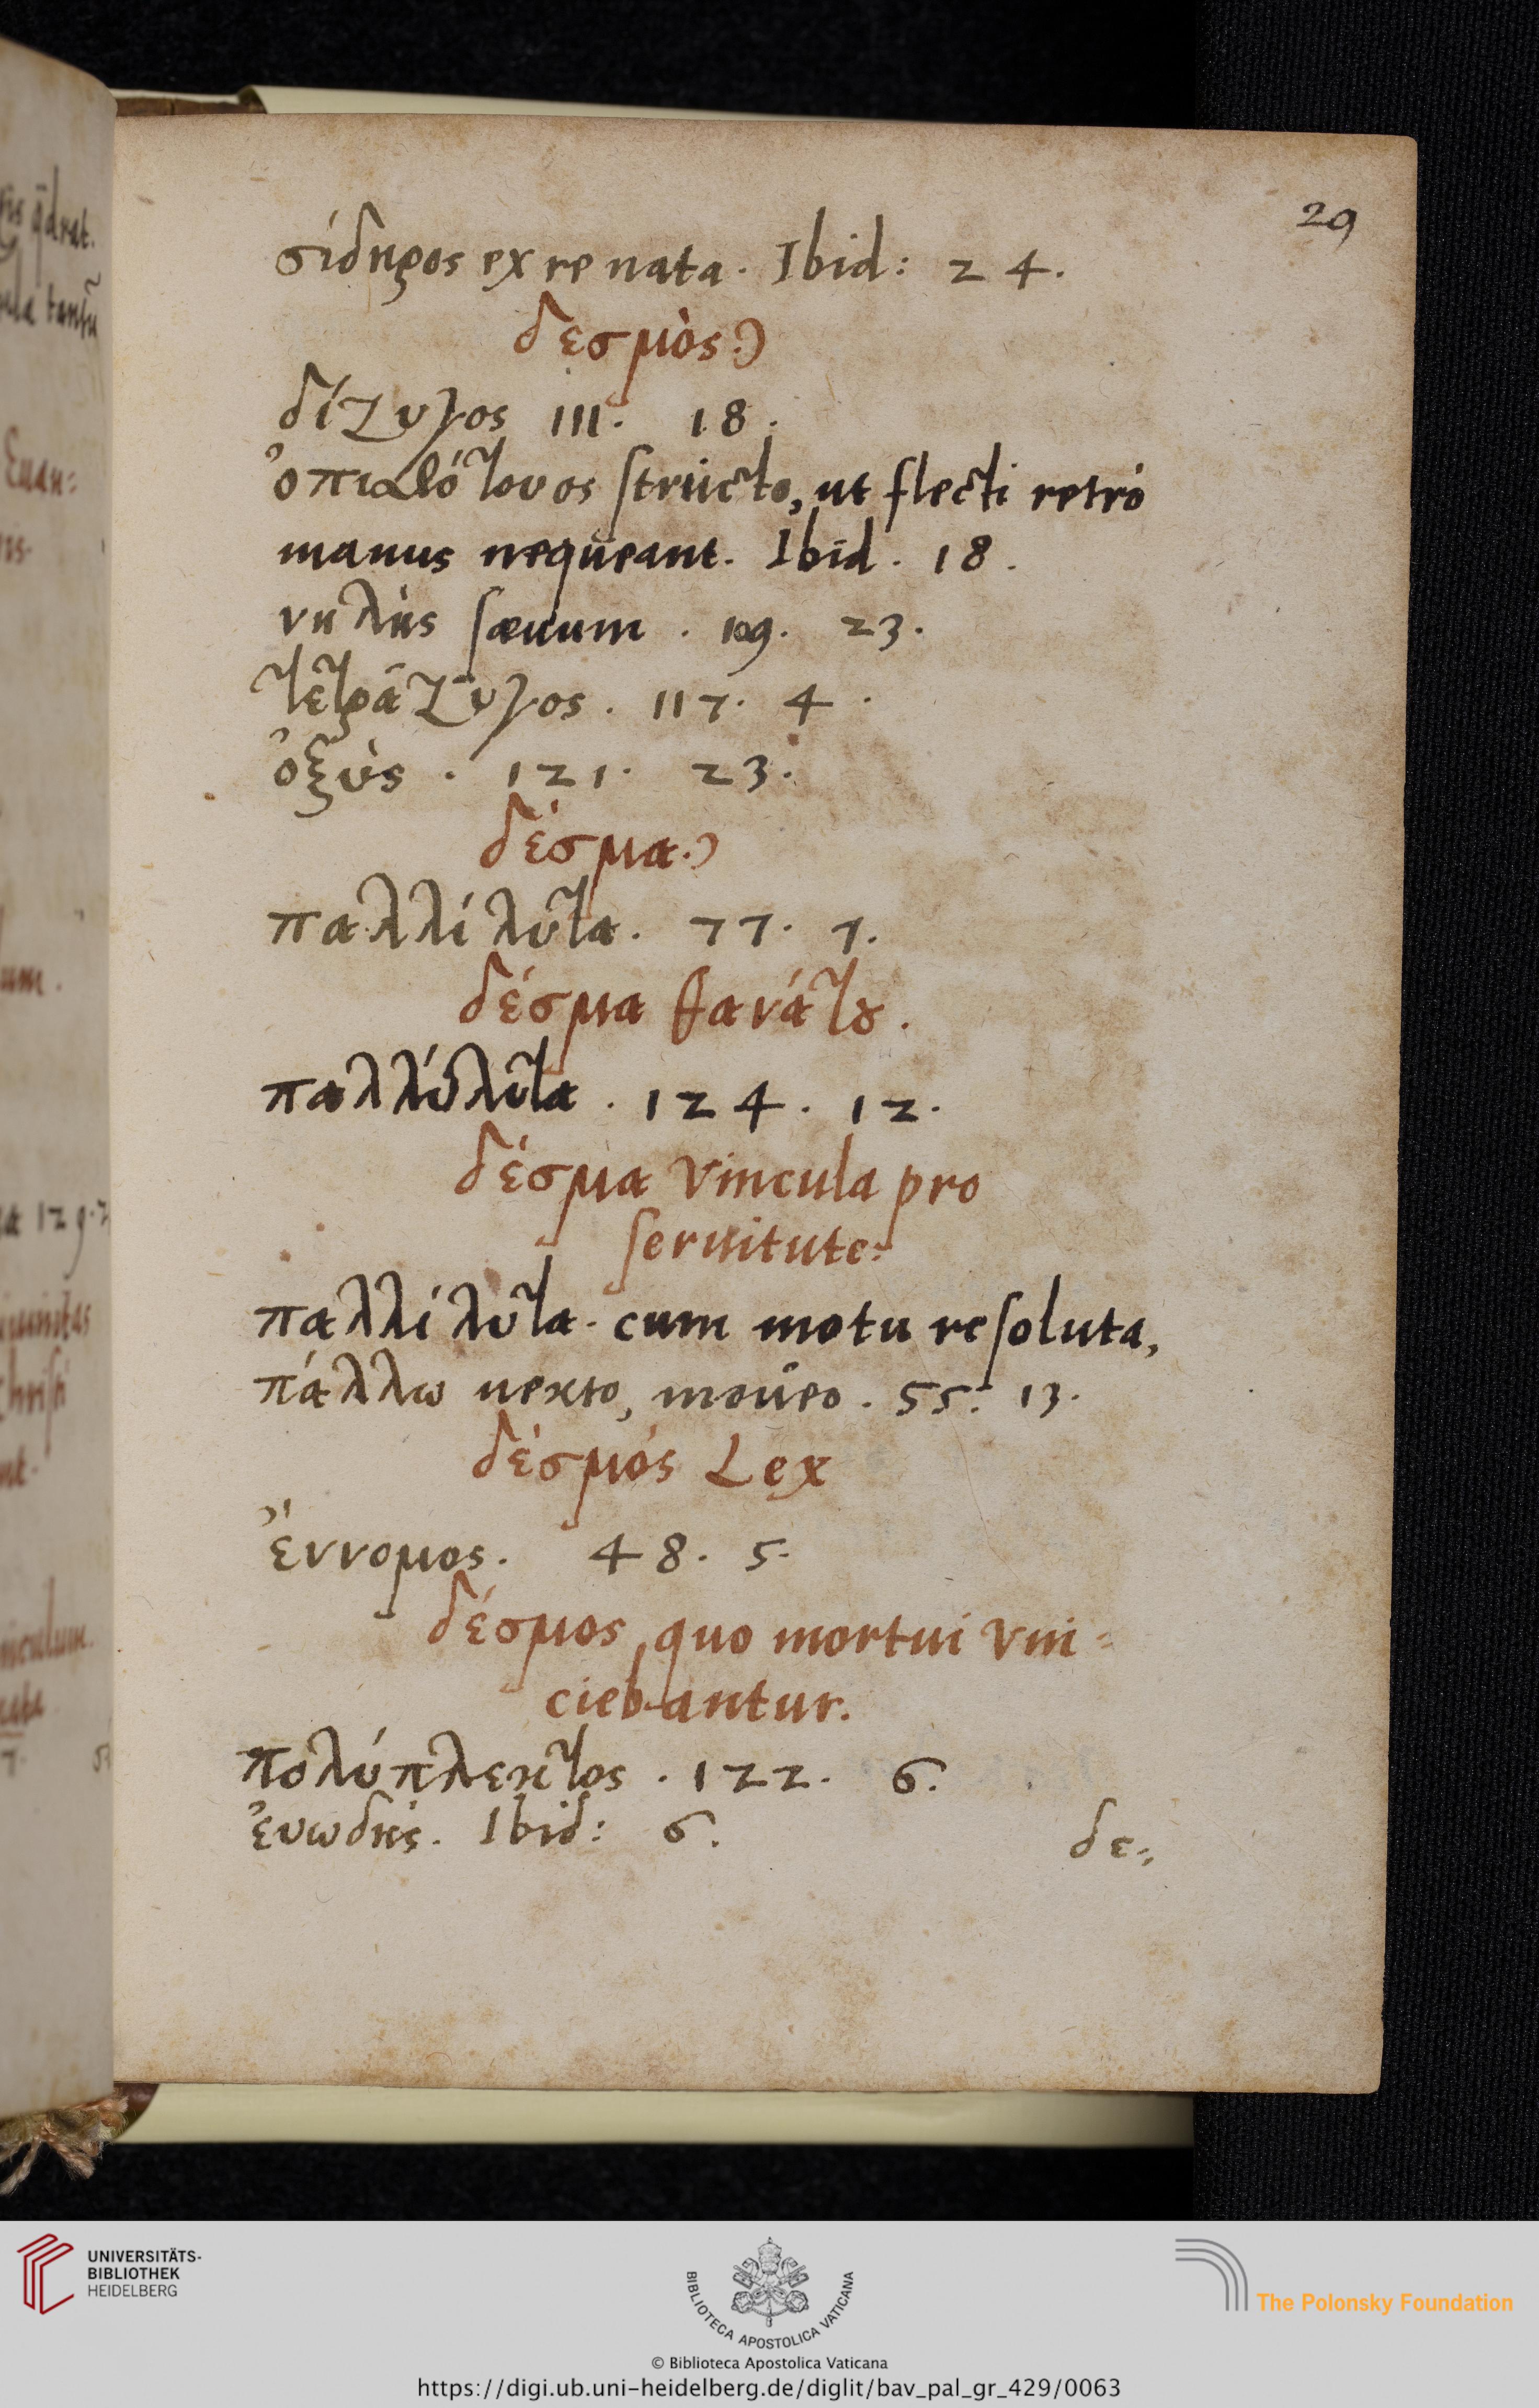 29
σίδηρος ex re nata. Ibid: 24.
δεσμὸς.
δίζυγος 111. 18.
ὀπισθότονος structo, ut flecti retrò
manus nequeant. Ibid. 18.
νηλὴς sæuum. 109. 23.
τετράζυγος. 117. 4.
ὀξὺς. 121. 23.
δέσμα.
παλλίλυτα. 77. 7.
δέσμα θανάτȣ.
παλλίλυτα. 124. 12.
δέσμα vincula pro
seruitute.
παλλίλυτα. cum motu resoluta,
πάλλω necto, moueo. 55. 13.
δέσμός Lex
ἔννομος. 48. 5.
δέσμος, quo mortui vin=
ciebantur.
πολύπλεκτος. 122. 6.
ἐυωδής. Ibid: 6.
δε=
UNIVERSITÄTS-
BIBLIOTHEK
HEIDELBERG
BIBLIOTECA APOSTOLICA VATICANA
The Polonsky Foundation
© Biblioteca Apostolica Vaticana
https://digi.ub.uni-heidelberg.de/diglit/bav_pal_gr_429/0063